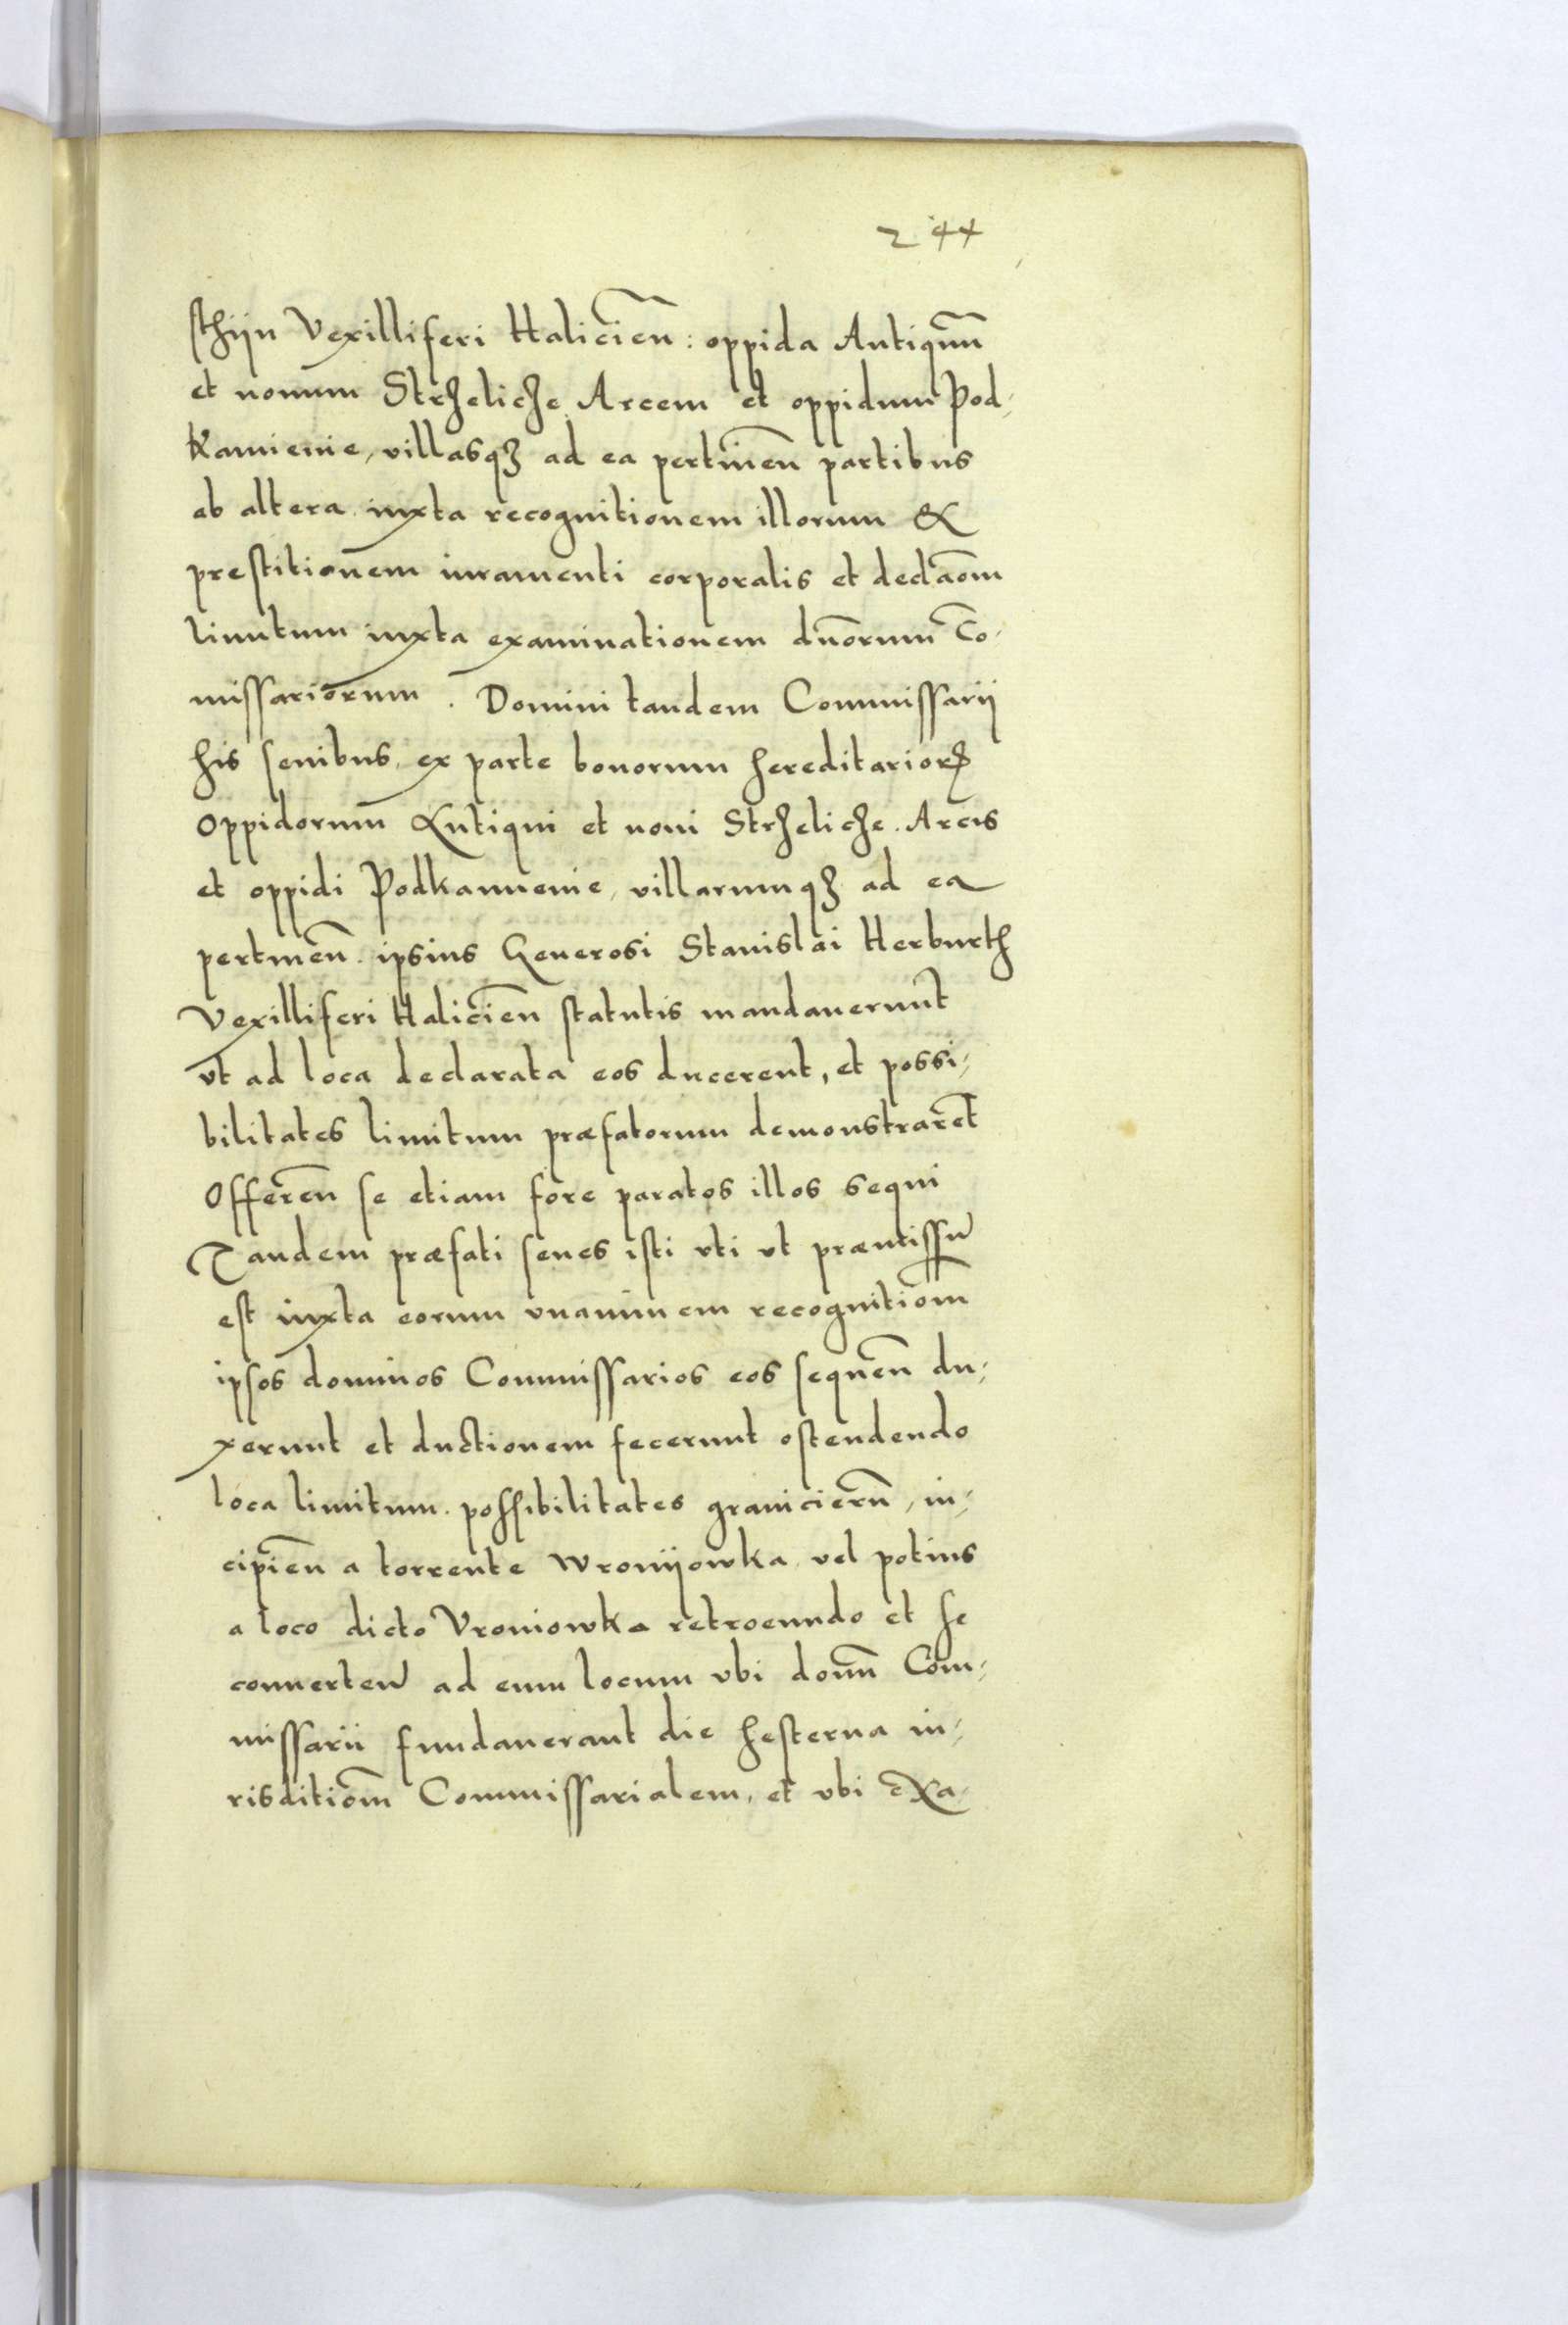 244
sthijn Vexilliferi Haliciēn: oppida Antiquū
et nouum Strzelicze Arcem et oppidum Pod-
kamienie, villasqz ad ea pertinēn partibus
ab altera iuxta recognitionem illorum &
prestitionem iuramenti corporalis et declāom
limitum iuxta examinationem dn̄orum Co-
missariorum. Domini tandem Commissarij
his senibus ex parte bonorum hereditarioꝝ
oppidorum Antiqui et noui Strzelicze. Arcis
et oppidi Podkamienie, villarumqz ad ea
pertinēn. ipsius Generosi Stanislai Herburth
Vexilliferi Haliciēn statutis mandauerunt
vt ad loca declarata eos ducerent, et possi-
bilitates limitum præfatorum demonstrarēt
Offerēn se etiam fore paratos illos sequi
Tandem præfati senes isti vti vt præmissū
est iuxta eorum vnanimem recognitiōm
ipsos dominos Commissarios eos sequēn du-
xerunt et ductionem fecerunt ostendendo
loca limitum. possibilitates granicierū, in-
cipiēn a torrente Wronijowka vel potius
a loco dicto Vroniowka retroeundo et se
conuerteñ ad eum locum vbi domī Com-
missarii fundauerant die hesterna iu-
risditiōm Commissarialem, et vbi exa-